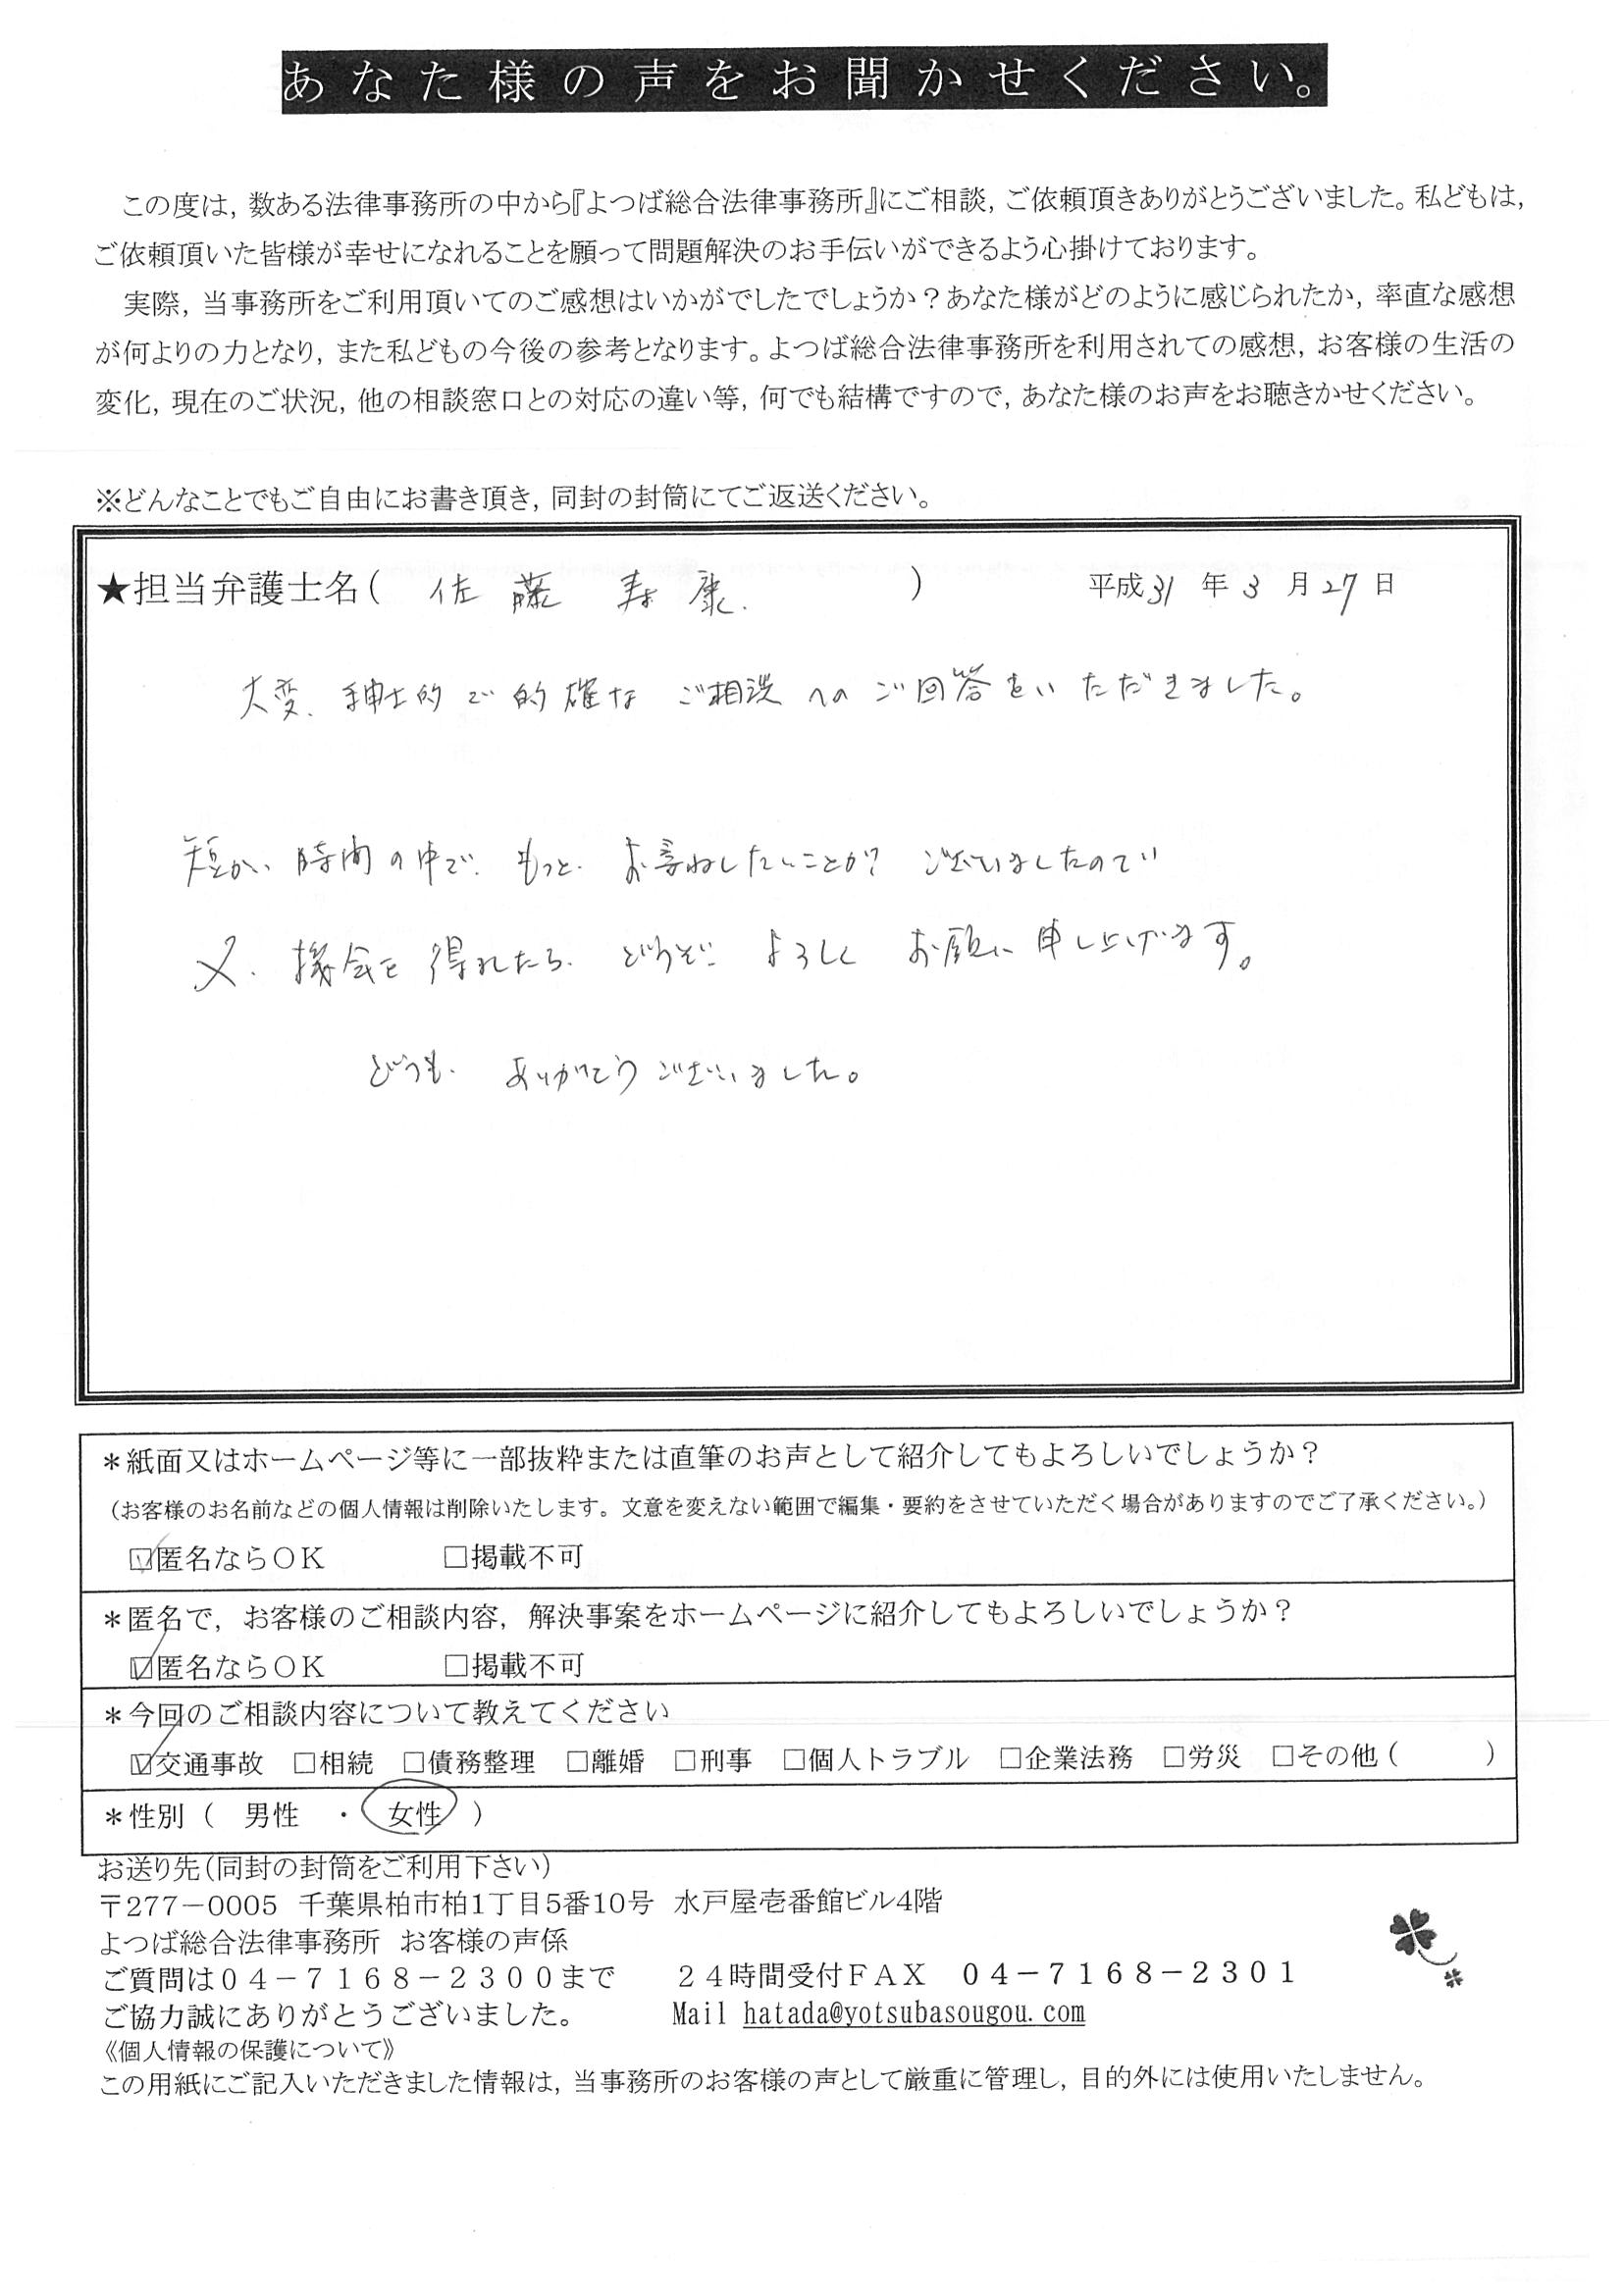 あなた様の声をお聞かせください。
この度は，数ある法律事務所の中から『よつば総合法律事務所』にご相談，ご依頼頂きありがとうございました。私どもは，
ご依頼頂いた皆様が幸せになれることを願って問題解決のお手伝いができるよう心掛けております。
実際，当事務所をご利用頂いてのご感想はいかがでしたでしょうか？あなた様がどのように感じられたか，率直な感想
が何よりの力となり，また私どもの今後の参考となります。よつば総合法律事務所を利用されての感想，お客様の生活の
変化，現在のご状況，他の相談窓口との対応の違い等，何でも結構ですので，あなた様のお声をお聴きかせください。
※どんなことでもご自由にお書き頂き，同封の封筒にてご返送ください。
★担当弁護士名（ 佐藤 寿康. ） 平成31年3月27日
大変、紳士的で的確な ご相談へのご回答をいただきました。
短かい時間の中で、もっと、お尋ねしたいことが ございましたので
又、機会を得れたら、どうぞ よろしく お願い申し上げます。
どうも、ありがとうございました。
＊紙面又はホームページ等に一部抜粋または直筆のお声として紹介してもよろしいでしょうか？
（お客様のお名前などの個人情報は削除いたします。文意を変えない範囲で編集・要約をさせていただく場合がありますのでご了承ください。）
☑匿名ならＯＫ □掲載不可
＊匿名で，お客様のご相談内容，解決事案をホームページに紹介してもよろしいでしょうか？
☑匿名ならＯＫ □掲載不可
＊今回のご相談内容について教えてください
☑交通事故 □相続 □債務整理 □離婚 □刑事 □個人トラブル □企業法務 □労災 □その他（ ）
＊性別（ 男性 ・ 女性 ）
お送り先（同封の封筒をご利用下さい）
〒277－0005 千葉県柏市柏1丁目5番10号 水戸屋壱番館ビル4階
よつば総合法律事務所 お客様の声係
ご質問は０４－７１６８－２３００まで ２４時間受付ＦＡＸ ０４－７１６８－２３０１
ご協力誠にありがとうございました。 Mail hatada@yotsubasougou.com
《個人情報の保護について》
この用紙にご記入いただきました情報は，当事務所のお客様の声として厳重に管理し，目的外には使用いたしません。